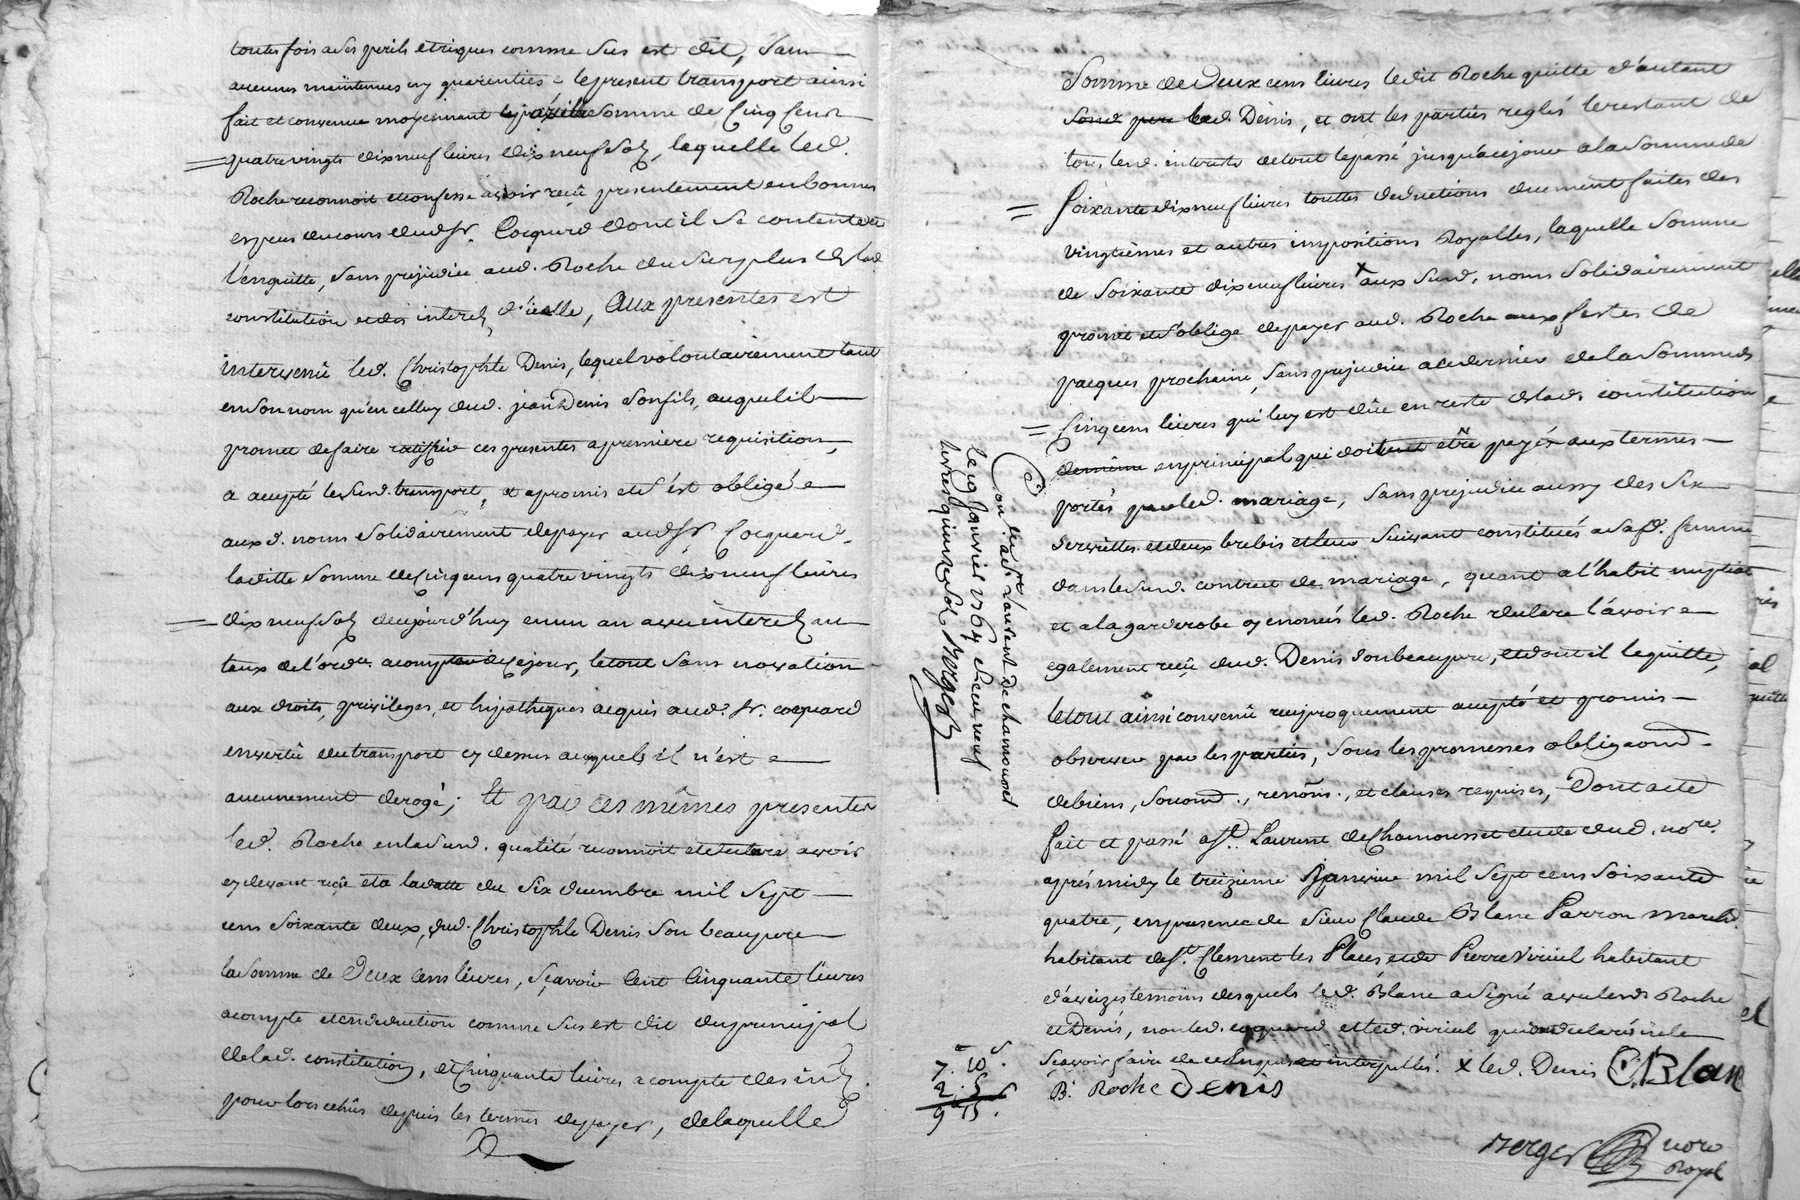 toutes fois a ses perils et risques comme sus est dit, sans
aucunes maintenues ny guarenties ; le present transport ainsi
fait et convenu moyennant somme de Cinq Cens
quatre vingts dix neuf livres dix neuf sols, laquelle led.
Roche reconnoit et confesse avoir reçû presentement en bonnes
especes du cours dud. Sr. Cocquard dont il se contente et
l'en quitte, sans prejudice aud. Roche du surplus de lad.
constitution et des interets d'icelle, Aux presentes est
intervenû led. Christophle Denis, lequel volontairement tant
en son nom qu'en celluy dud. jean Denis son fils, auquel il
promet de faire ratiffier ces presentes a premiere requisition,
a accepté le susd. transport, et a promis et s'est obligé
auxd. noms solidairement de payer aud. Sr. Cocquard
laditte somme de Cinq cens quatre vingts dix neuf livres
dix neuf sols d'aujourd'huy en un an avec interets au
taux de l'ordce. a compter de ce jour, le tout sans novation
aux droits, privileges, et hipotheques acquis aud. Sr. cocquard
en vertû du transport cy dessus auxquels il n'est
aucunement derogé ; Et par ces mêmes presentes
led. Roche en la susd. qualité reconnoit et declare avoir
cy devant reçû et a la datte du six decembre mil sept
cens soixante deux, dud. Christophle Denis son beaupere
la somme de Deux Cens livres, sçavoir Cent Cinquante livres
a compte et en deduction comme sus est dit du principal
de lad. constitution, et Cinquante livres a compte des intts.
pour lors echûs depuis les termes de payer, de laquelle
Somme de Deux cens livres ledit Roche quitte d'autant
led. Denis, et ont les parties reglés le restant de
tous lesd. interets de tout le passé jusqu'a ce jour a la somme de
Soixante dix neuf livres touttes deductions duement faites des
vingtiemes et autres impositions Royalles, laquelle somme
de soixante dix neuf livres x aux susd. noms solidairement
promet et s'oblige de payer aud. Roche aux festes de
pacques prochaine, sans prejudice a ce dernier de la somme de
Cinq cens livres qui luy est dûe en reste de lad. constitution
en principal qui doit être payée aux termes
portés par led. mariage, sans prejudice aussy des six
serviettes et deux brebis et leur suivant constitués a sad. femme
dans le susd. contract de mariage, quant a l'habit nuptial
et a la garderobe y enoncés led. Roche declare l'avoir
egalement reçû dud. Denis son beaupere, et dont il le quitte,
le tout ainsi convenû reciproquement accepté et promis
observer par les parties, sous les promesses obligaond.
de biens, soumd., renons., et clauses requises, Dont acte
fait et passé a St. Laurent de Chamousset etude dud. nore.
après midy le treizieme Janvier mil sept cens soixante
quatre, en presence de sieur Claude Blanc Parron march.
habitant de St. Clement les Places et de Pierre Viricel habitant
d'aveizes temoins desquels led. Blanc a signé avec lesd. Roche
et Denis, non led. coquard et led. viricel qui ont declaré ne le
sçavoir faire de ce enquis et interpellés. x led. Denis C. Blan
B. Roche Denis
Berger nore
Royal
7. 10s.
2. 5
9 15.
Con. au St. Laurent de chamousset
le 19 Janvier 1764 Reçu neuf
livres quinze sols Berger